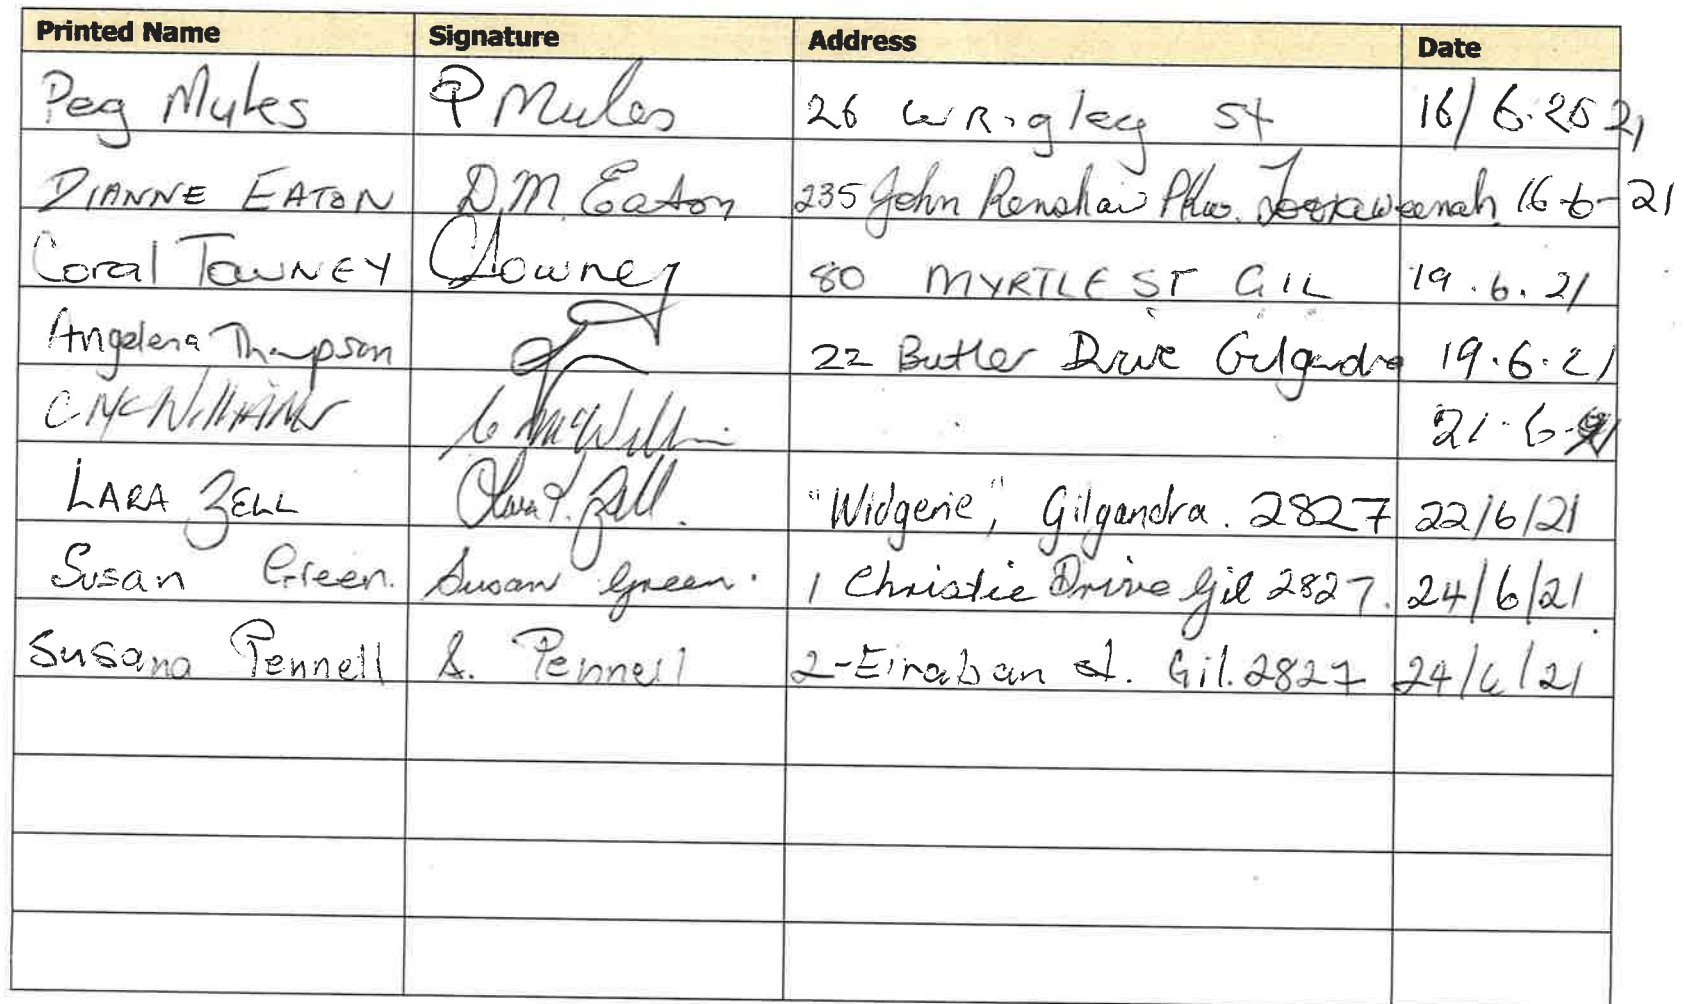 Printed Name Signature Address Date
Peg Myles P Myles 26 WRigley St 16/6.2021
DIANNE EATON D.M. Eaton 235 John Renshaw Pkw. Tooraweenah 16-6-21
Coral TOWNEY CTowney 80 MYRTLE ST GIL 19.6.21
Angelena Thompson 22 Butler Drive Gilgandra 19.6.21
C McWILLIAMS C McWilli 21.6.21
LARA ZELL Zell. "Widgerie", Gilgandra. 2827 22/6/21
Susan Green. Susan Green. 1 Christie Drive Gil 2827. 24/6/21
Susana Pennell S. Pennell 2-Eiraban St. Gil. 2827 24/6/21